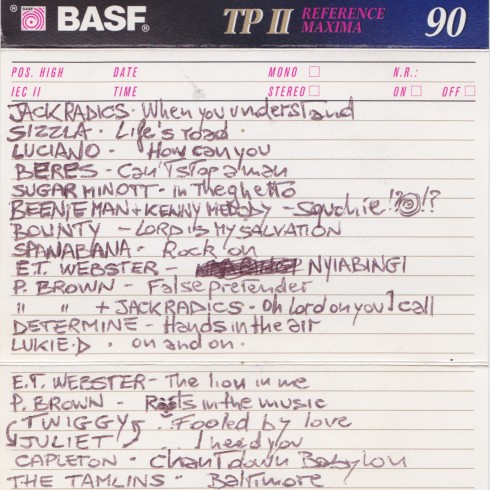 BASF® BASF® TP II REFERENCE MAXIMA 90
POS. HIGH DATE MONO N.R.:
IEC II TIME STEREO ON OFF
JACK RADICS - When you understand
SIZZLA - Life's road -
LUCIANO - How can you
BERES - Can't stop a man
SUGAR MINOTT - in the ghetto
BEENIE MAN + KENNY MELODY - Squchie!?!?
BOUNTY - LORD IS MY SALVATION
SPANABANA - Rock on
E.T. WEBSTER - NYIABINGI
P. BROWN - False pretender
" " + JACK RADICS - Oh lord on you I call
DETERMINE - Hands in the air
LUKIE D - on and on -
E.T. WEBSTER - The lion in me
P. BROWN - Roots in the music
TWIGGY - Fooled by love
JULIET - I need you
CAPLETON - Chant down Babylon
THE TAMLINS - Baltimore